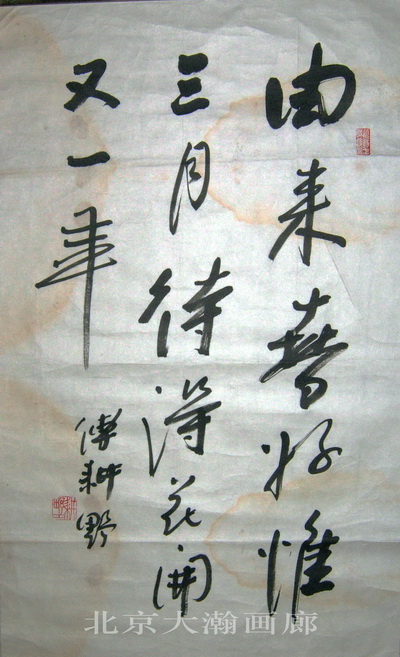 由来春好惟
三月待得花開
又一年
傅耕野
北京大瀚画廊